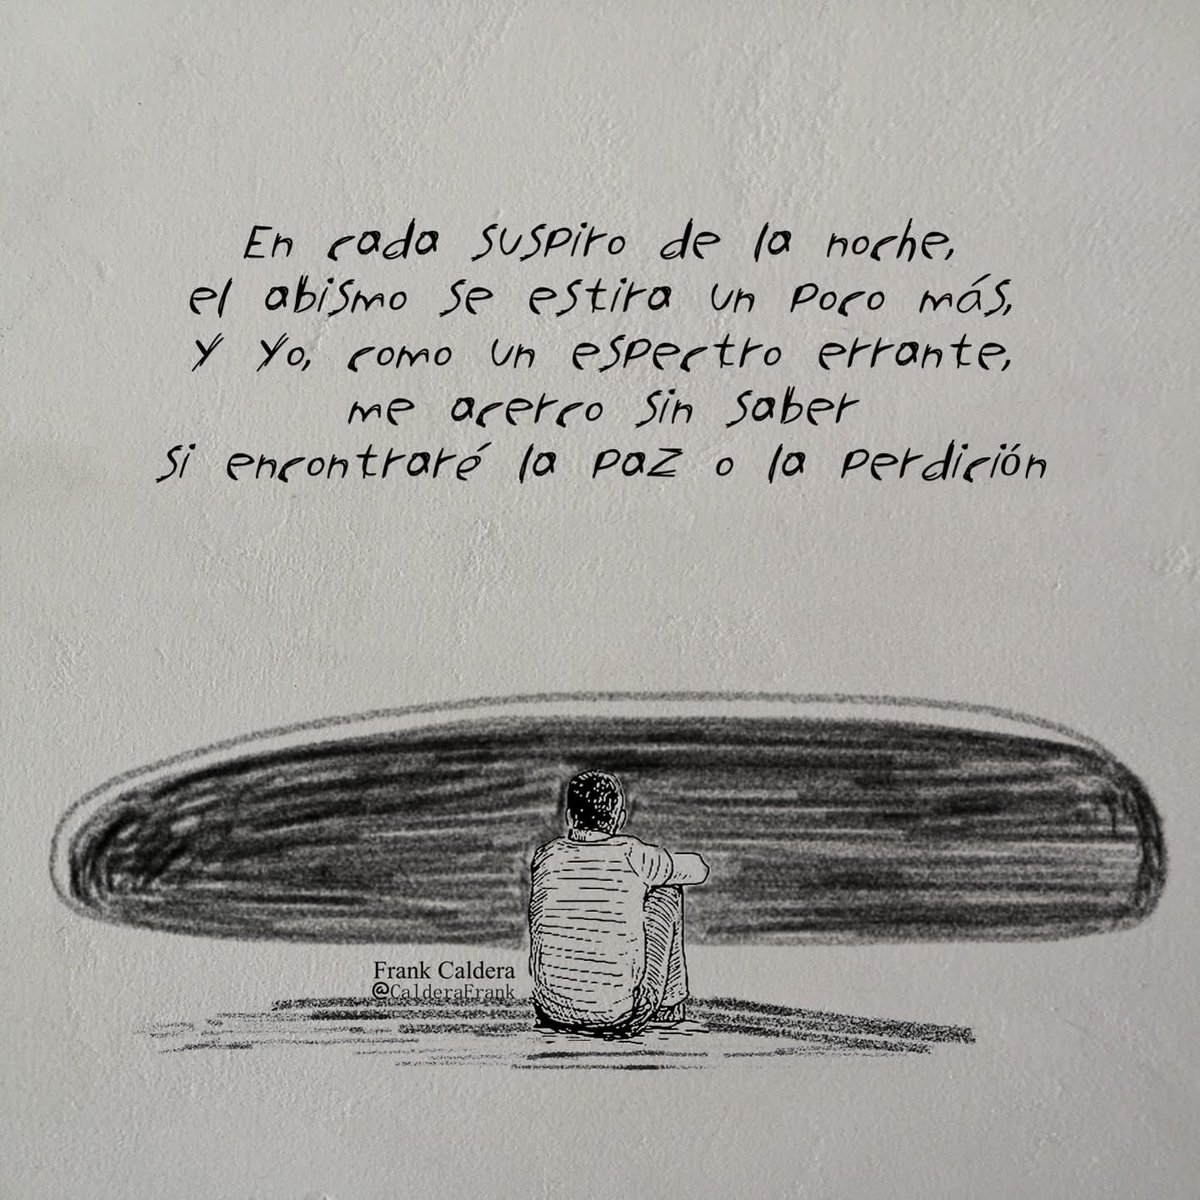 En cada suspiro de la noche,
el abismo se estira un poco más,
y yo, como un espectro errante,
me acerco sin saber
si encontraré la paz o la perdición
Frank Caldera
@CalderaFrank